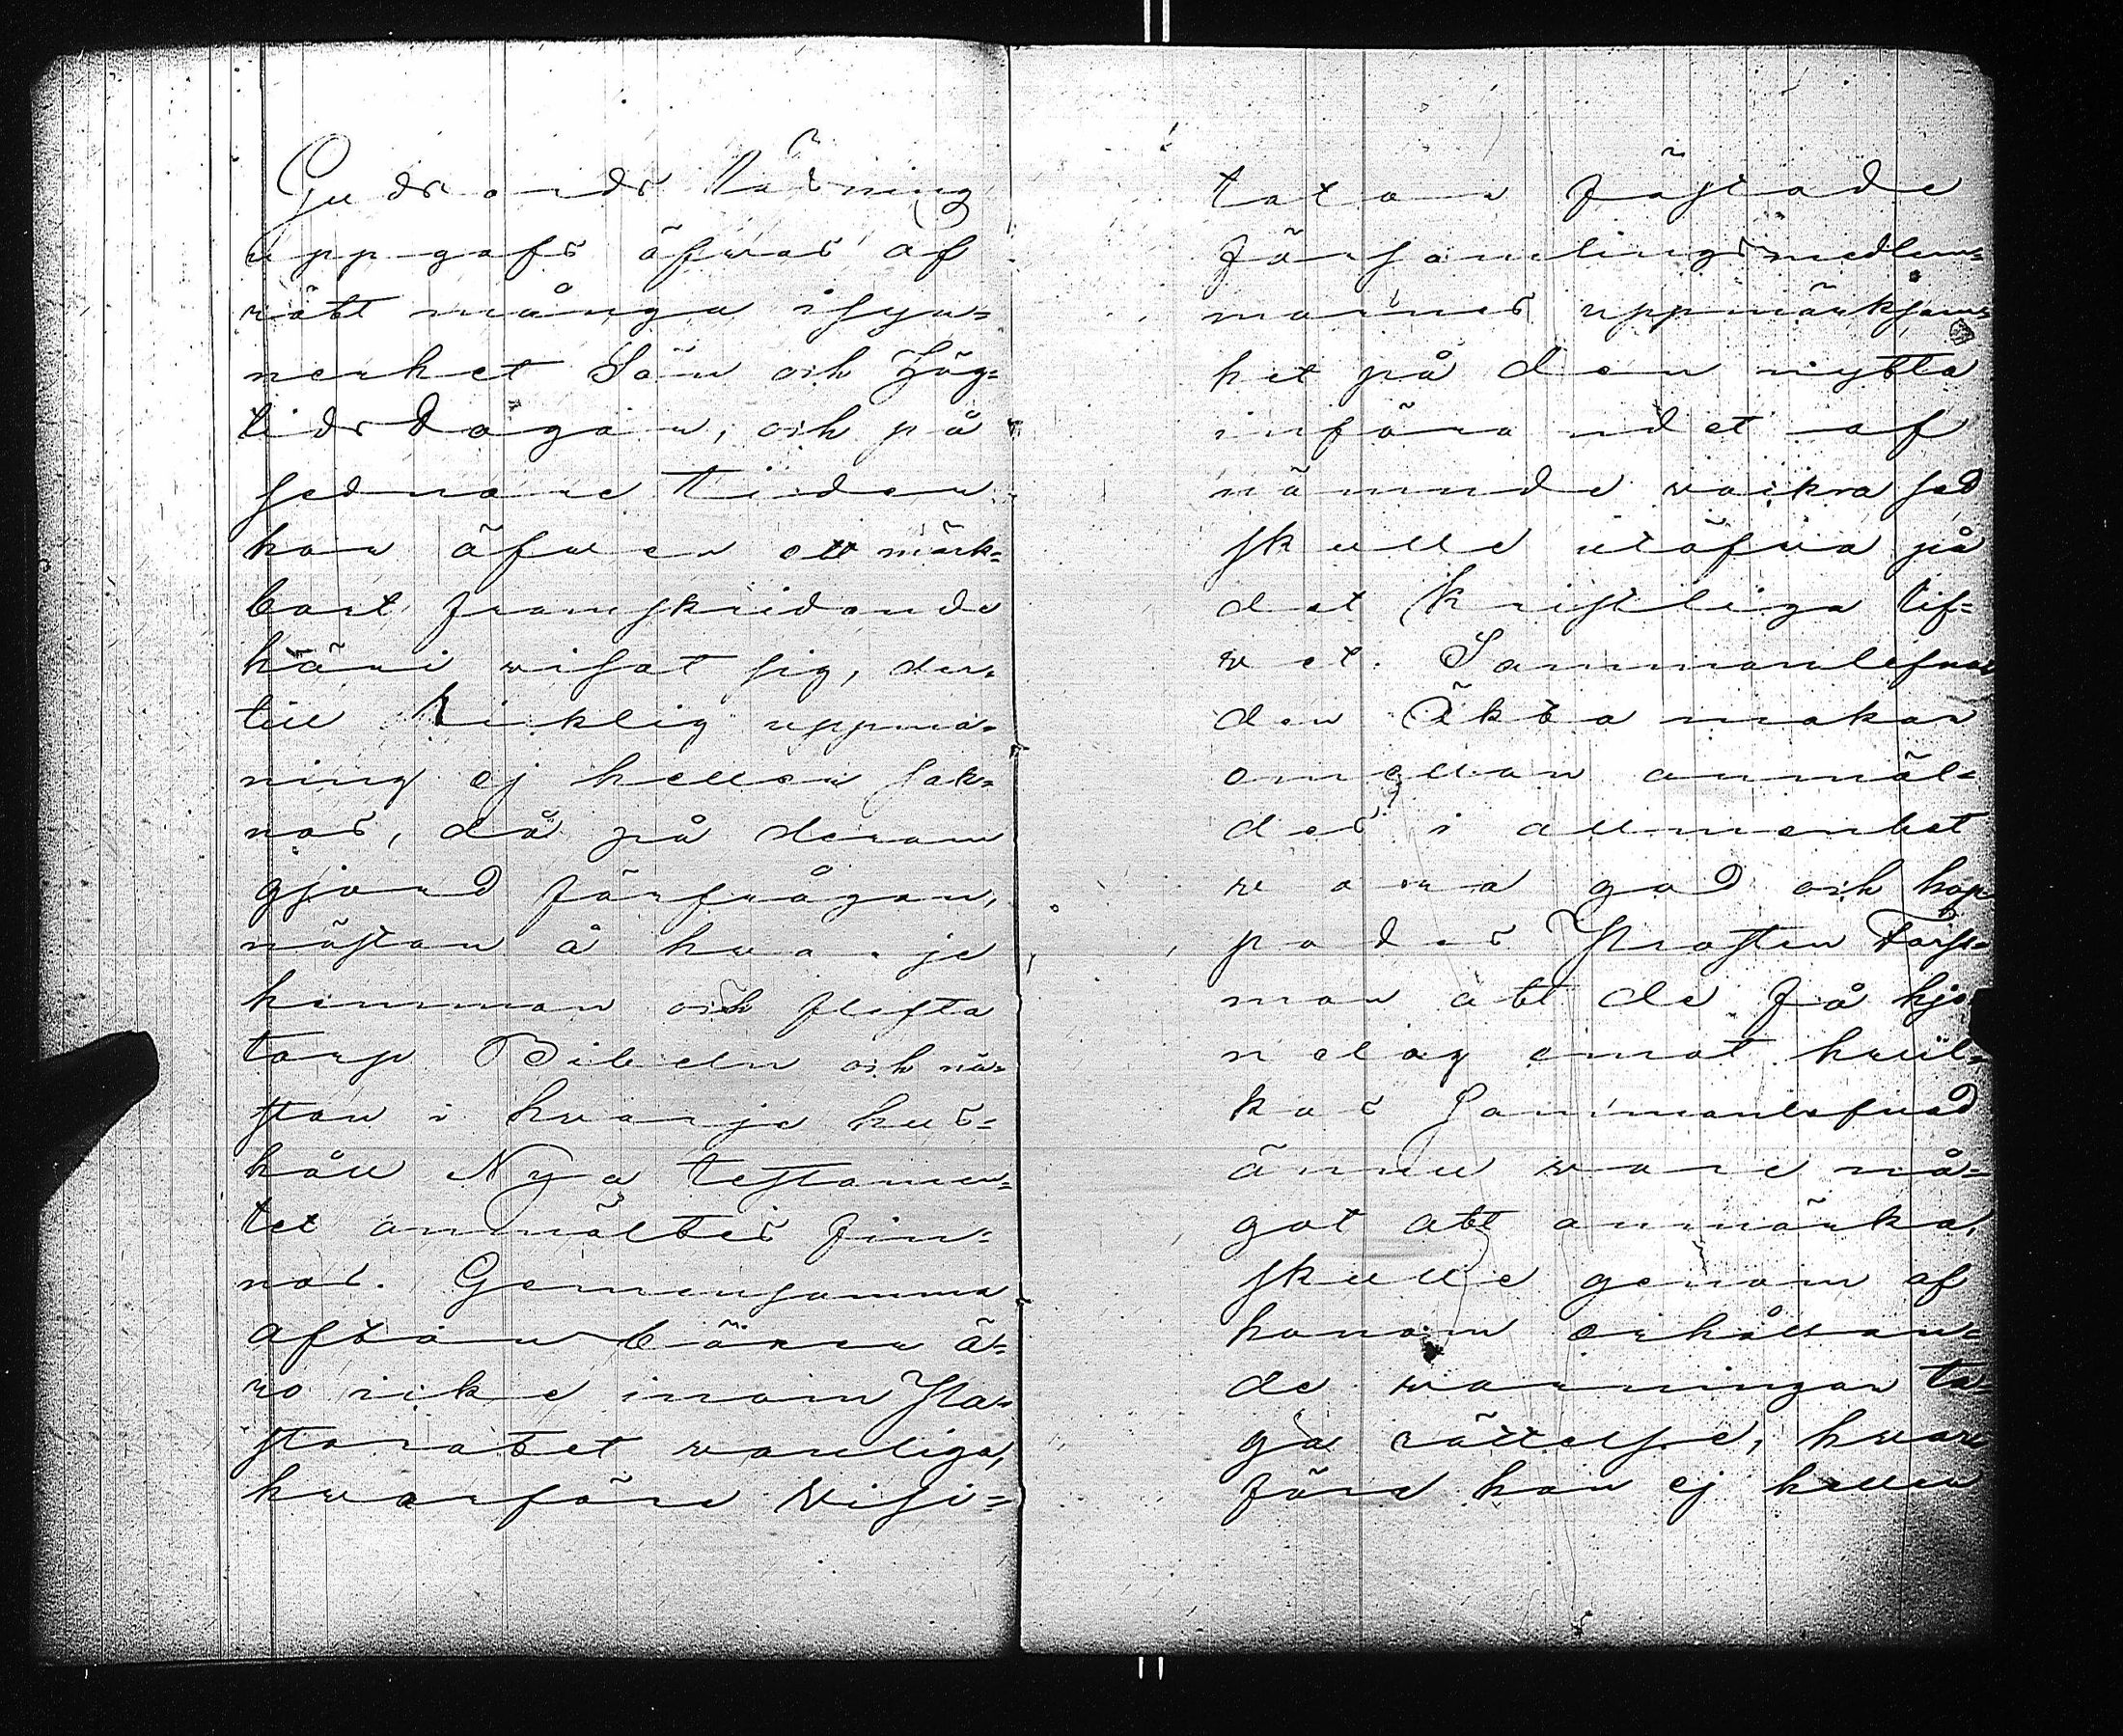 Guds ords läsning
uppgafs öfwas af
rätt många isyn=
nerhet Sön och Hög=
tidsdagar, och på
sednare tiden
har äfwen ett märk=
bart framskridande
häri wisat sig, der=
till tillklig uppma=
ning ej heller sak=
nas, då på derom
gjord förfrågan,
nästan å hwarje
hemman och flesta
torp Bibeln och nä=
stan i hwarje hus=
håll Nya testamen=
tet anmältes fin=
nas. Gemensamma
aftonböner ä=
ro icke inom Pa=
storatet wanliga,
hwarföre Visi=
tator fästade
församlingsmedlem=
marnes uppmärksam=
het på den nytta
införandet af
nämnde wackra sed
skulle utöfwa på
det kristliga lif=
wet. Sammanlefna
den Äkta makar
emellan anmäl=
des i allmenhet
wara god och hop
pades Prosten Fors=
man att de få hjo
nelag emot hwil=
kas Sammanlefnad
ännu ware nå=
got att anmärka,
skulle genom af
honom erhållan=
de warningar ta=
ga rättelse, hwar
före han ej heller